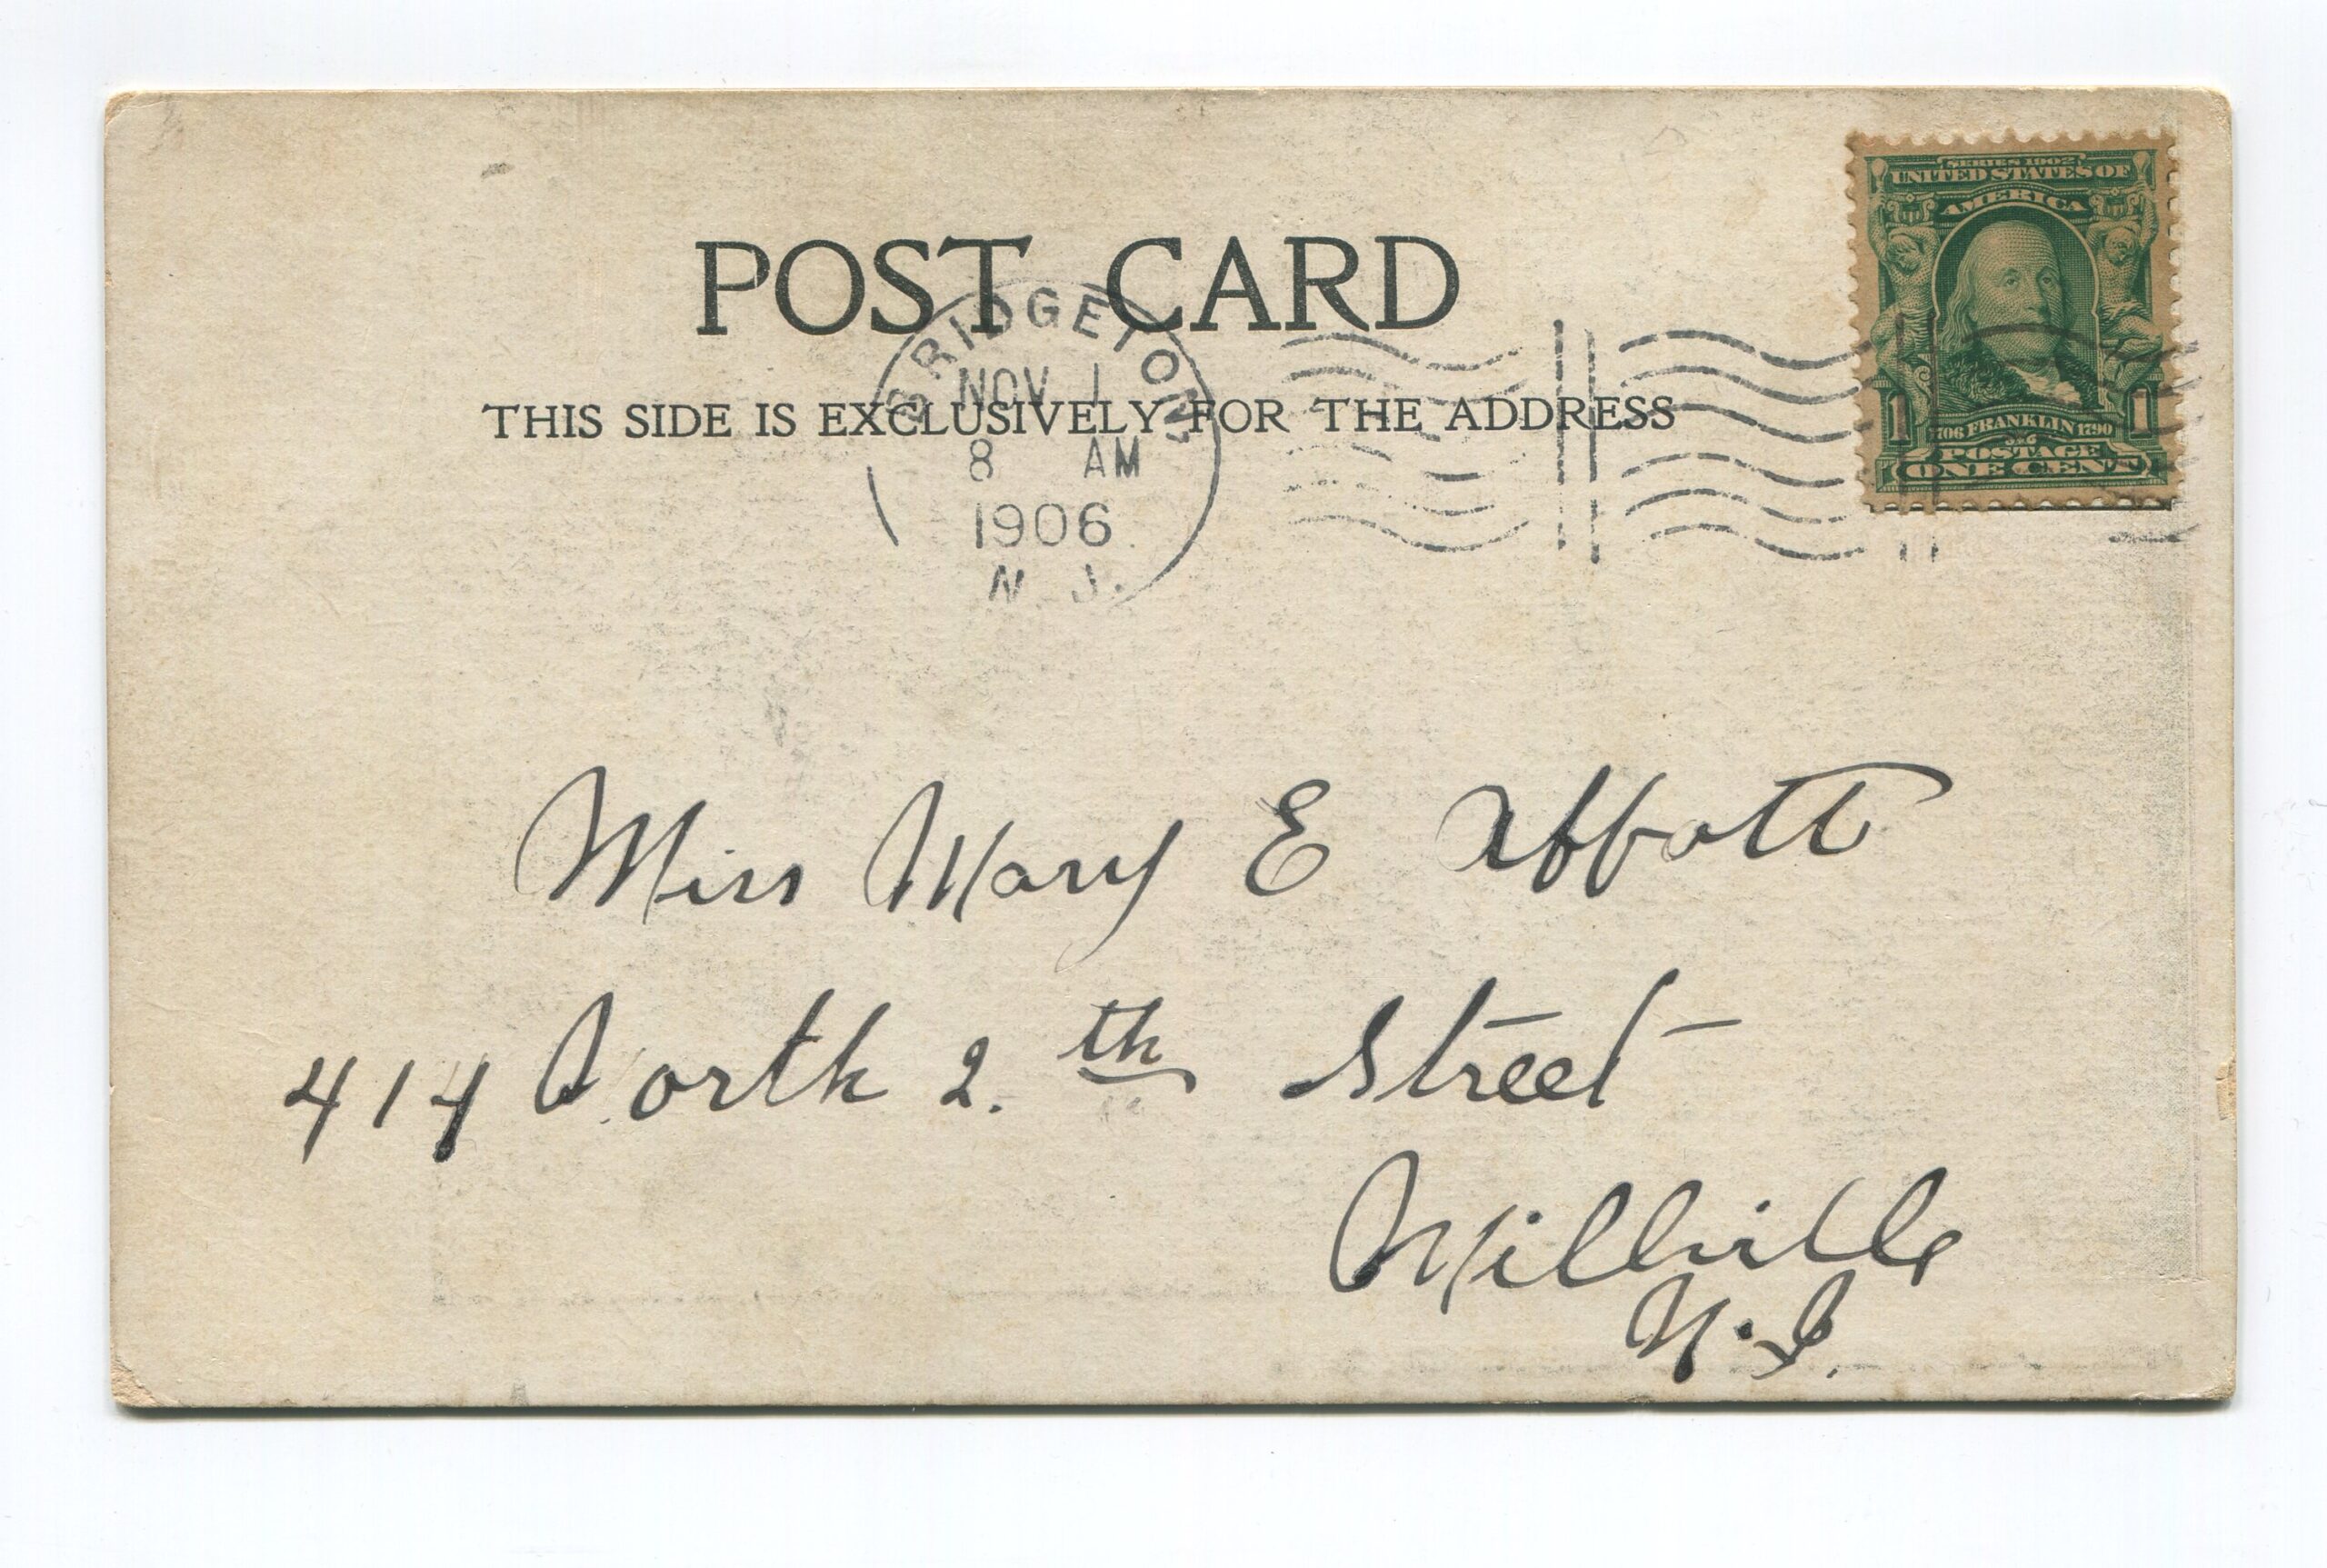 POST CARD
THIS SIDE IS EXCLUSIVELY FOR THE ADDRESS
BRIDGETON
NOV 1
8 AM
1906
N. J.
SERIES 1902
UNITED STATES OF
AMERICA
1 1706 FRANKLIN 1790 1
POSTAGE
ONE CENT
Miss Mary E Abbott
414 North 2.th Street
Millville
N.J.